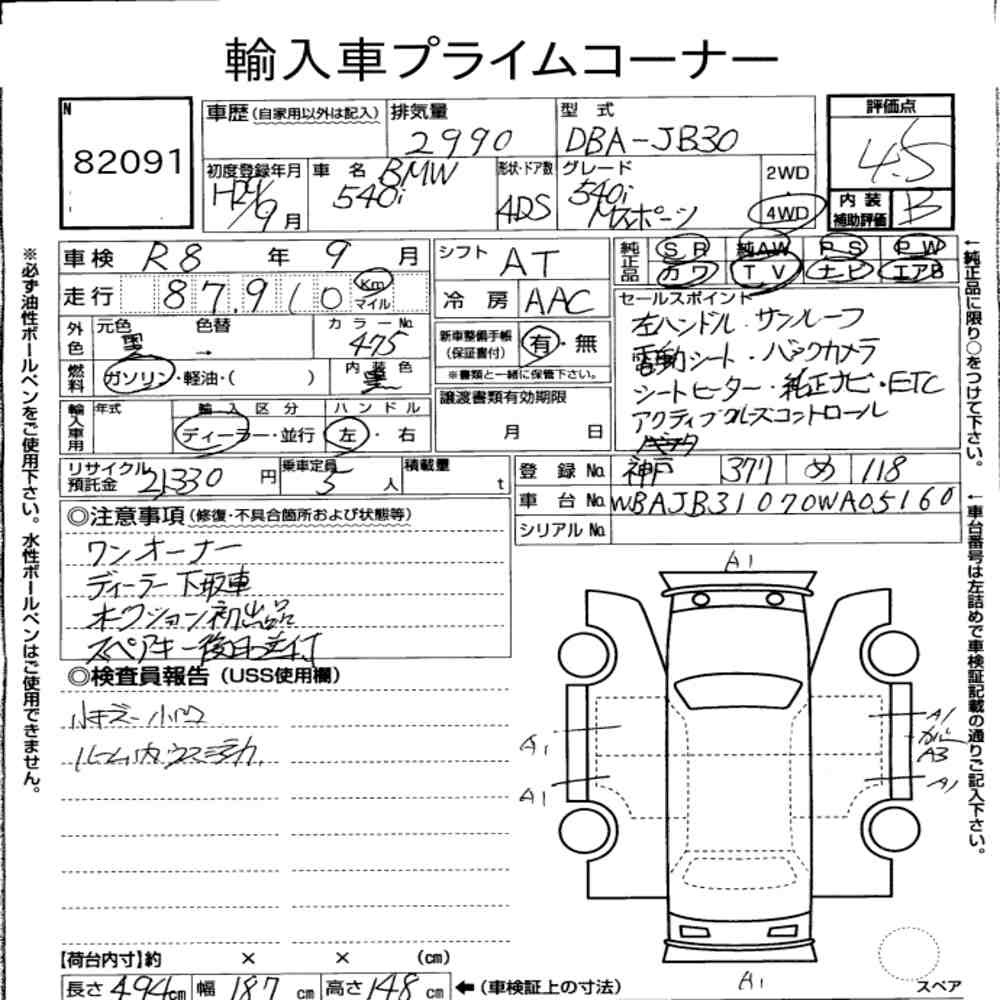 輸入車プライムコーナー
N
82091
車歴(自家用以外は記入)
排気量
2990
型 式
DBA-JB30
評価点
4.5
初度登録年月
9月
車 名
BMW
540i
形状・ドア数
4DS
グレード
540i
Mスポーツ
2WD
4WD
内 装
補助評価
B
車検 R8 年 9 月
走行 87,910 Km
マイル
シフト AT
冷 房 AAC
純正品
SR 純AW PS PW
カワ TV ナビ エアB
外色
元色
黒
色替
→
カラーNo.
475
燃料
ガソリン・軽油・( )
内 装 色
黒
新車整備手帳
(保証書付)
有・無
※書類と一緒に保管下さい。
セールスポイント
左ハンドル・サンルーフ
電動シート・バックカメラ
シートヒーター・純正ナビ・ETC
アクティブクルーズコントロール
輸入車用
年式
輸 入 区 分
ディーラー・並行
ハ ン ド ル
左・右
譲渡書類有効期限
月 日
リサイクル
預託金
21330 円
乗車定員
5 人
積載量
t
登 録 No. 神戸 377 め 118
車 台 No. WBAJB31070WA05160
シリアル No.
◎注意事項(修復・不具合箇所および状態等)
ワンオーナー
ディーラー下取車
オークション初出品
スペアキー後日送付
◎検査員報告(USS使用欄)
小キズ・小凹
ルーム内ウスヨゴレ
A1
A1
A1
A1
A3
A1
A1
【荷台内寸】約 × × (cm)
長さ 494cm 幅 187 cm 高さ 148 cm ←(車検証上の寸法)
スペア
※必ず油性ボールペンをご使用下さい。水性ボールペンはご使用できません。
←純正品に限り○をつけて下さい。
←車台番号は左詰めで車検証記載の通りご記入下さい。